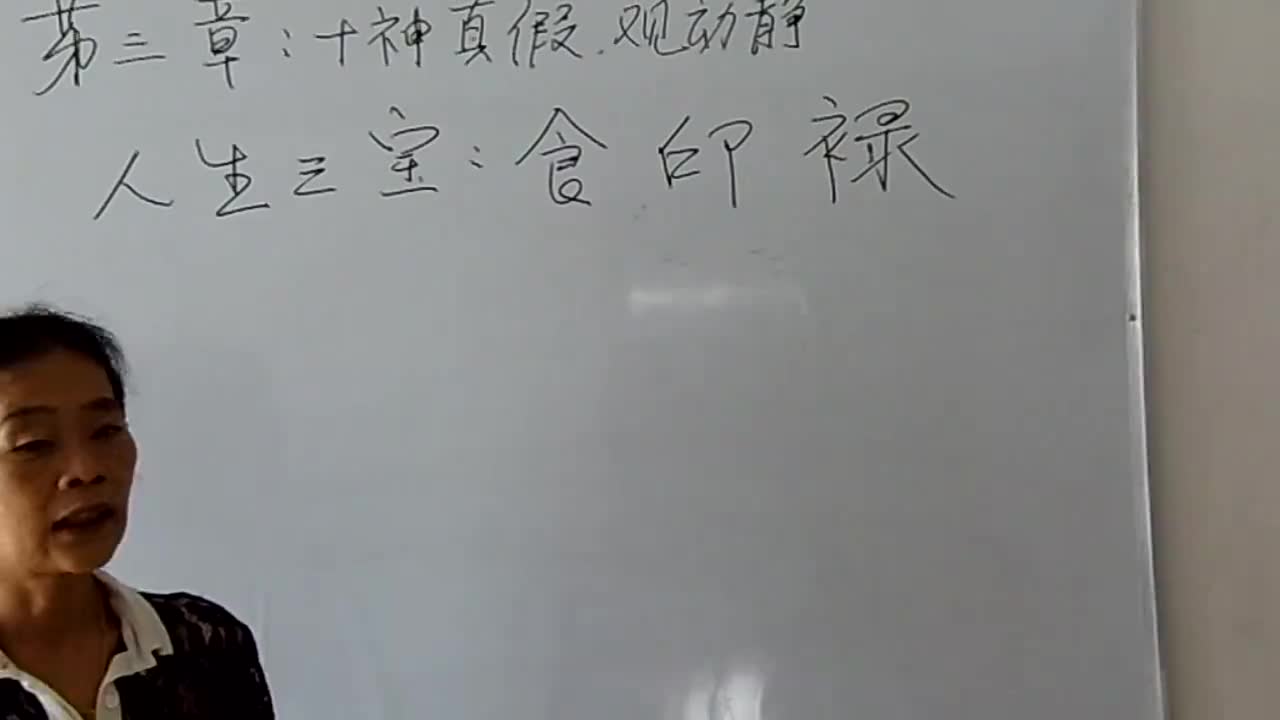 第三章：十神真假.观动静
人生三宝：食 印 禄